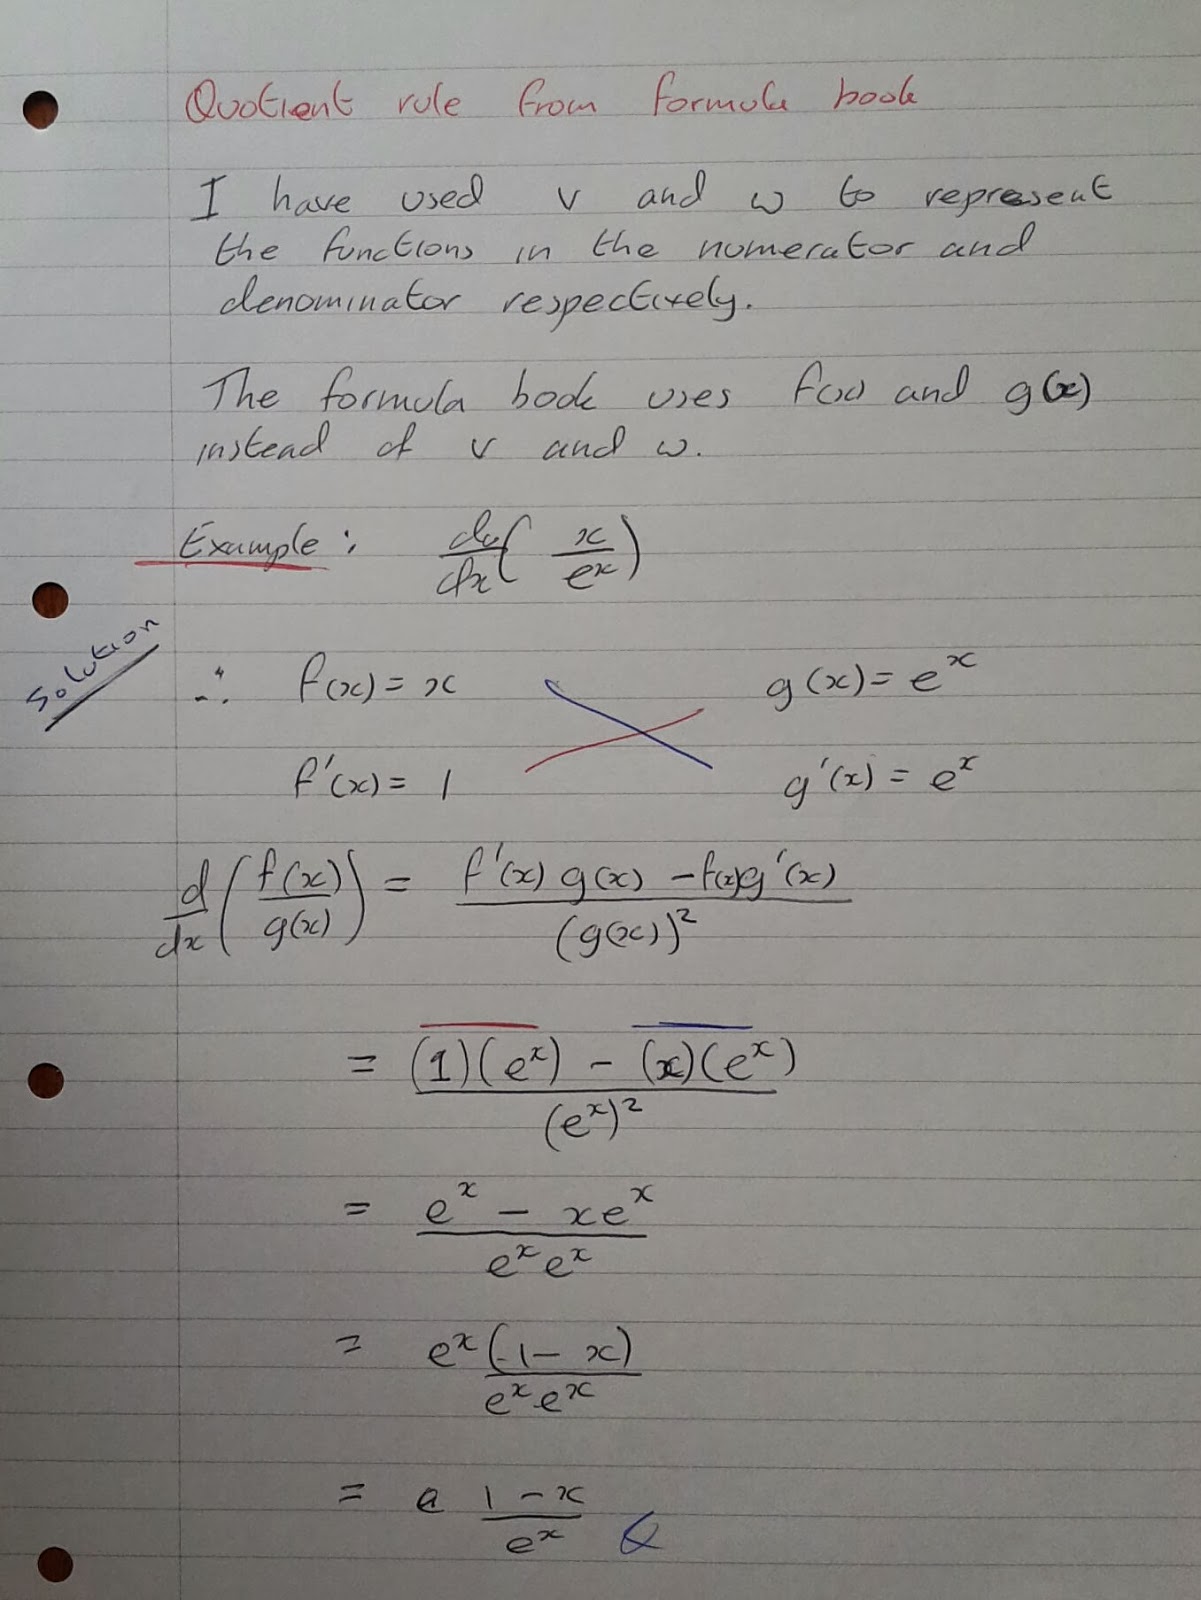 Quotient rule from formula book
I have used v and w to represent
the functions in the numerator and
denominator respectively.
The formula book uses f(x) and g(x)
instead of v and w.
Example: dv/dx ( x/e^x )
Solution
∴ f(x) = x g(x) = e^x
f'(x) = 1 g'(x) = e^x
d/dx ( f(x)/g(x) ) = ( f'(x) g(x) - f(x)g'(x) ) / (g(x))^2
= ( (1)(e^x) - (x)(e^x) ) / (e^x)^2
= ( e^x - xe^x ) / ( e^x e^x )
= e^x(1 - x) / ( e^x e^x )
= (1 - x) / e^x